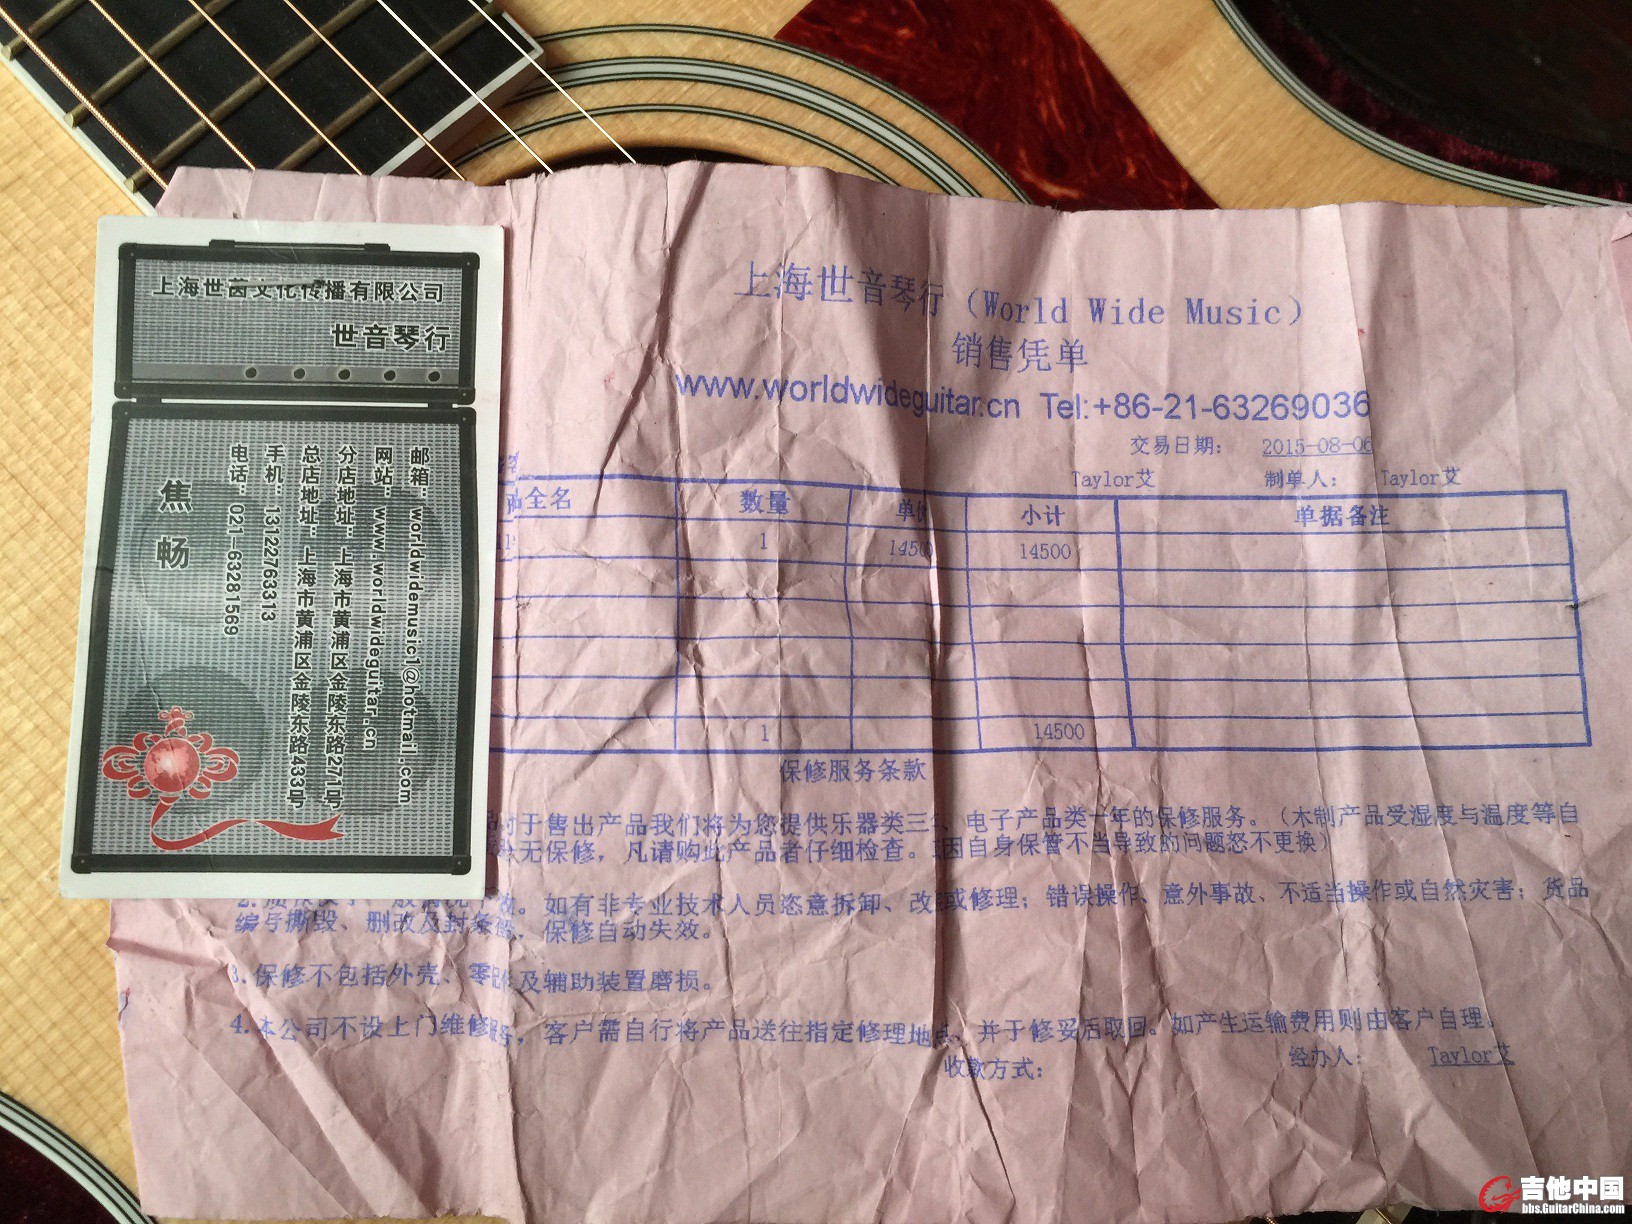 上海世茵文化传播有限公司
世音琴行
焦 畅
电话：021-63281569
手机：13122763313
总店地址：上海市黄浦区金陵东路433号
分店地址：上海市黄浦区金陵东路271号
网站：www.worldwideguitar.cn
邮箱：worldwidemusic1@hotmail.com
上海世音琴行（World Wide Music）
销售凭单
www.worldwideguitar.cn Tel:+86-21-63269036
交易日期： 2015-08-06
Taylor艾 制单人： Taylor艾
全名 数量 单价 小计 单据备注
1 14500 14500
1 14500
保修服务条款
对于售出产品我们将为您提供乐器类三 、电子产品类一年的保修服务。（木制产品受湿度与温度等自
无保修，凡请购此产品者仔细检查。 因自身保管不当导致的问题恕不更换）
2. 。如有非专业技术人员恣意拆卸、改 或修理；错误操作、意外事故、不适当操作或自然灾害；货品
编号撕毁、删改及封条 ，保修自动失效。
3.保修不包括外壳、零 及辅助装置磨损。
4.本公司不设上门维修 ，客户需自行将产品送往指定修理地 ，并于修妥后取回。如产生运输费用则由客户自理。
收款方式： 经办人： Taylor艾
吉他中国
bbs.GuitarChina.com